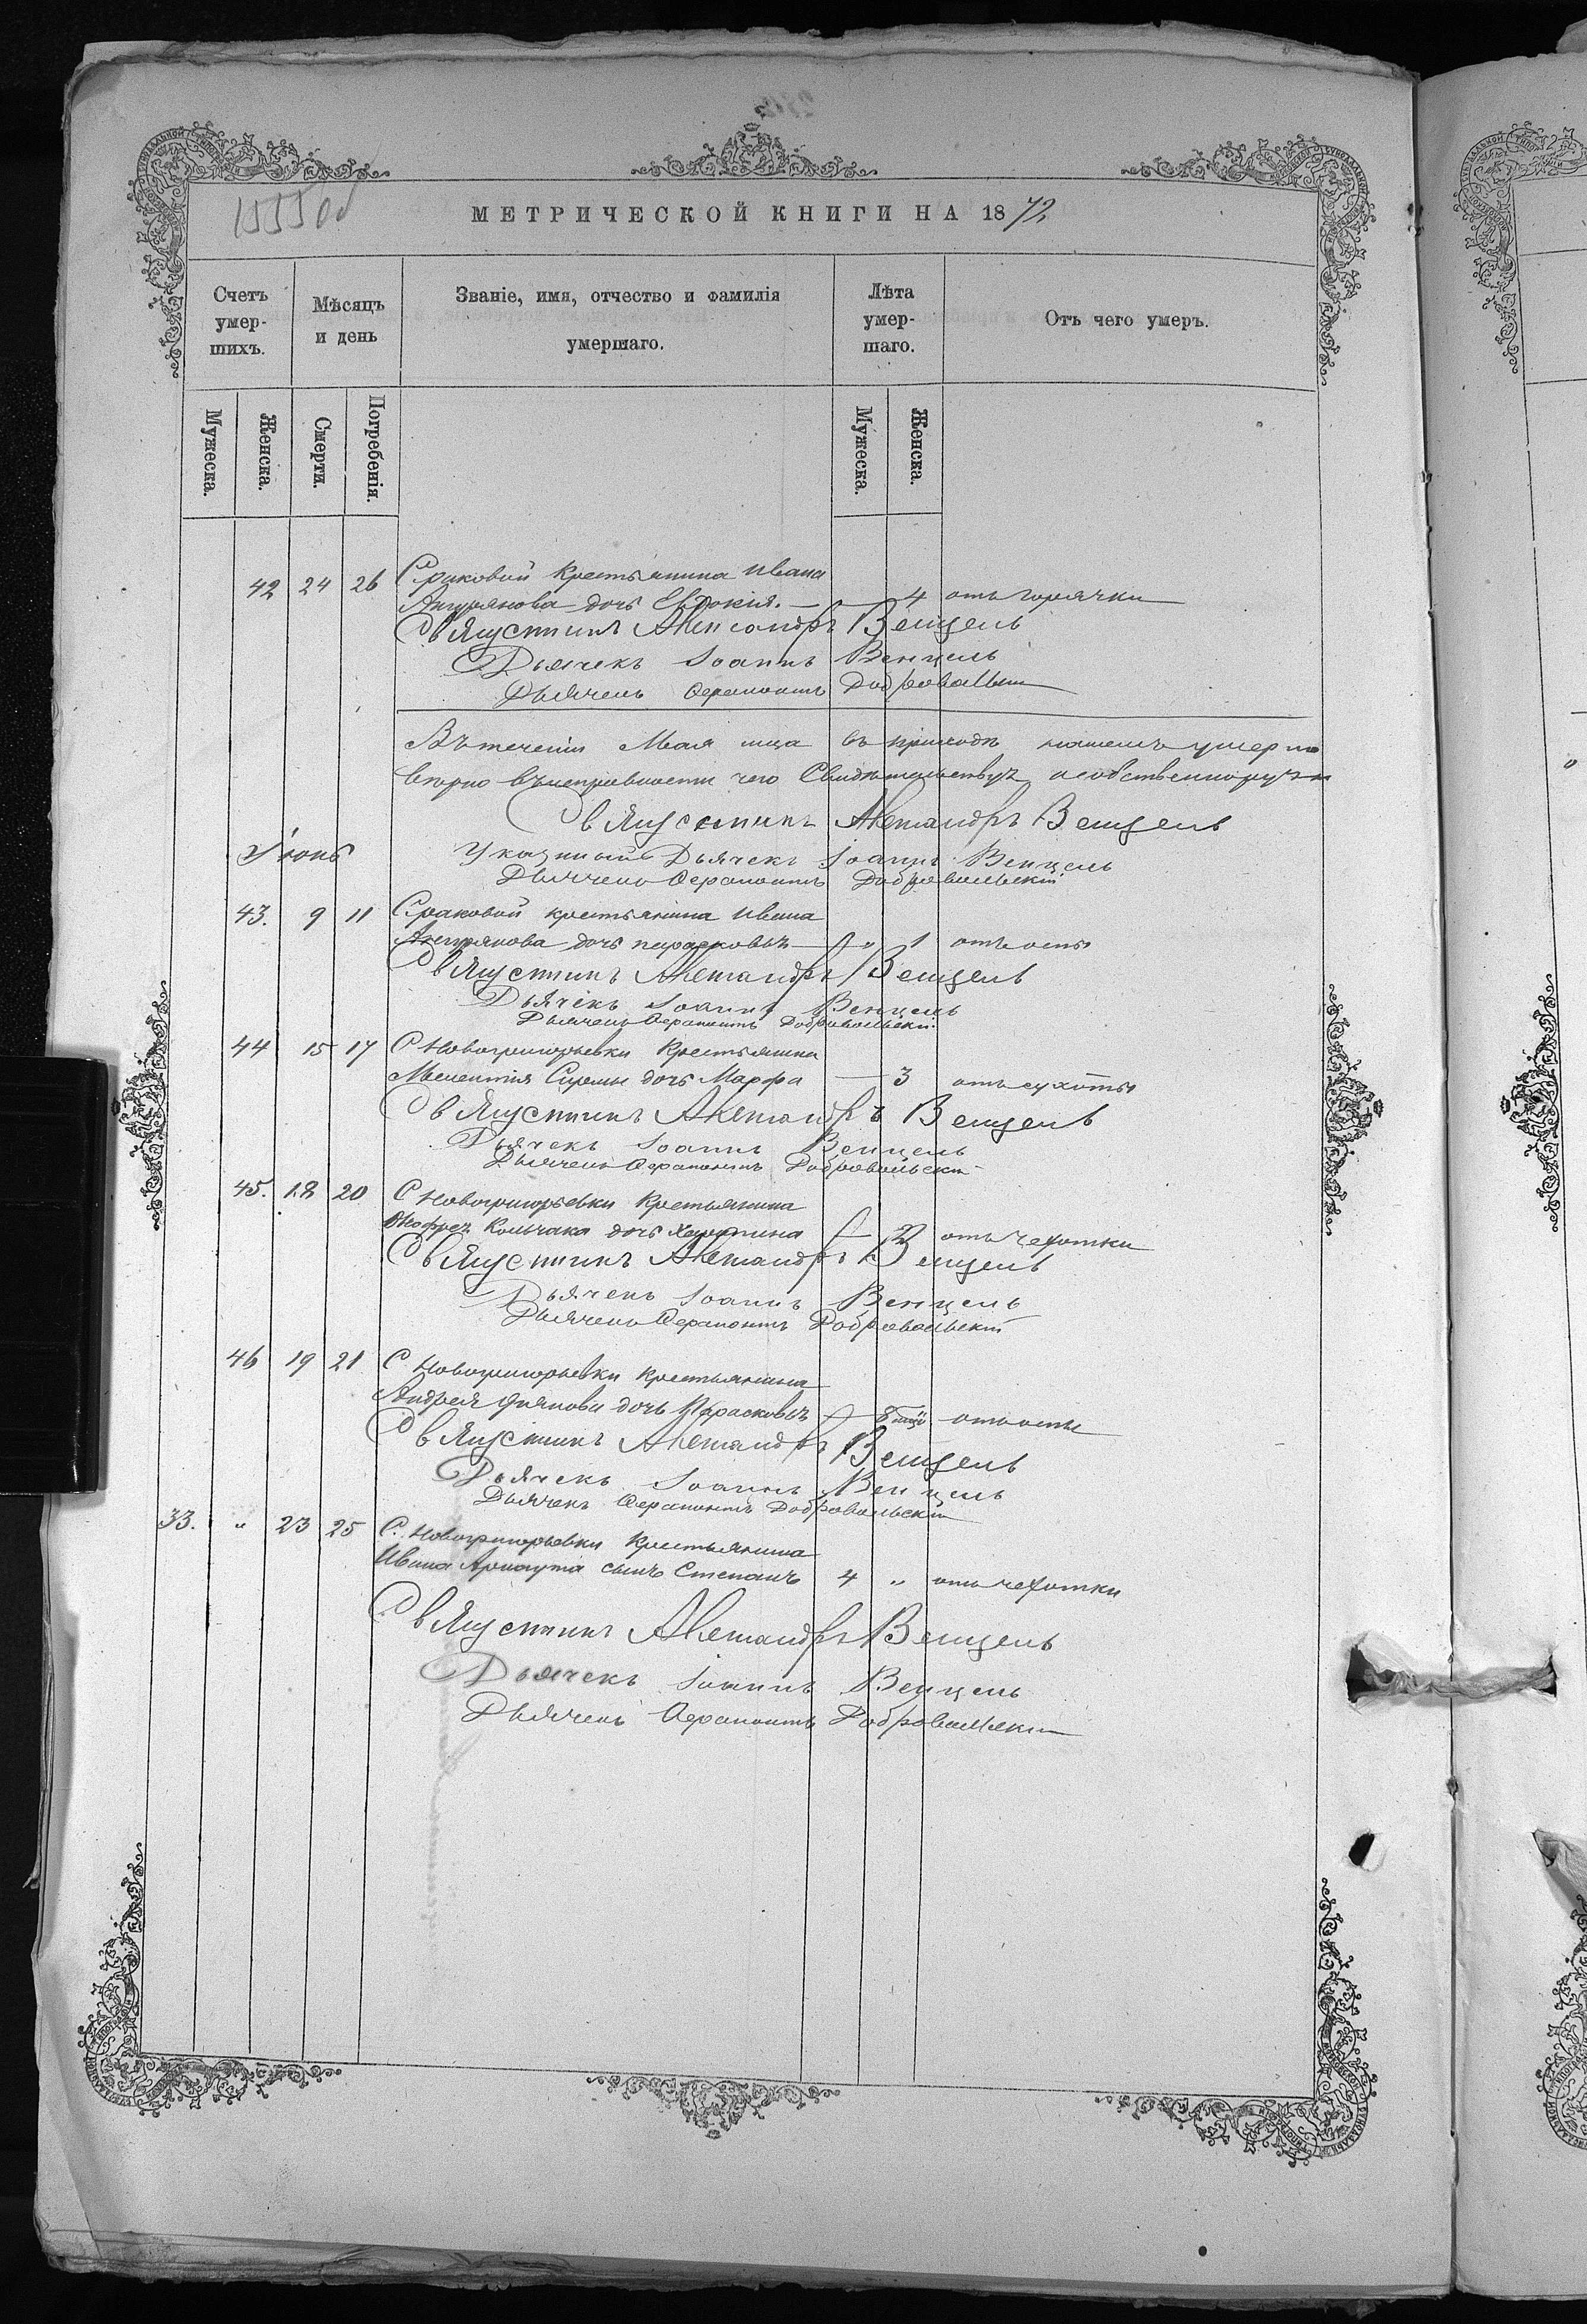 МЕТРИЧЕСКОЙ КНИГИ НА 1872
Счетъ умер-шихъ.
Мѣсяцъ и день
Званіе, имя, отчество и фамилія умершаго.
Лѣта умер-шаго.
Отъ чего умеръ.
Мужеска.
Женска.
Смерти.
Погребенія.
Мужеска.
Женска.
42 24 26 С раковой Крестьянина Ивана
дочь Евдокія. — 4 отъ горячки
Священникъ Александръ Венцель
Дьячекъ Іоаннъ Венцель
Дьячекъ Ферапонтъ Добровольскій
Въ теченіи Мая мца въ приходѣ нашемъ умерло
вѣрно въ исправности чего Свидѣтельствуемъ
Священникъ Александръ Венцель
Указный Дьячекъ Іоаннъ Венцель
Дьячекъ Ферапонтъ Добровольскій
Іюнь
43. 9 11 С раковой крестьянина Ивана
дочь параскова — " 1 отъ оспы
Священникъ Александръ Венцель
Дьячекъ Іоаннъ Венцель
Дьячекъ Ферапонтъ Добровольскій
44 15 17 С Новогригорьевки Крестьянина
Мелентія дочь Марфа — 3 отъ сухоты
Священникъ Александръ Венцель
Дьячекъ Іоаннъ Венцель
Дьячекъ Ферапонтъ Добровольскій
45. 18 20 С Новогригорьевки Крестьянина
Кольчака дочь — 2 отъ чехотки
Священникъ Александръ Венцель
Дьячекъ Іоаннъ Венцель
Дьячекъ Ферапонтъ Добровольскій
46 19 21 С Новогригорьевки крестьянина
Андрея дочь Парасковья — 8 отъ оспы
Священникъ Александръ Венцель
Дьячекъ Іоаннъ Венцель
Дьячекъ Ферапонтъ Добровольскій
33. " 23 25 С. Новогригорьевки Крестьянина
Ивана Арнаута сынъ Степанъ 4 " отъ чехотки
Священникъ Александръ Венцель
Дьячекъ Іоаннъ Венцель
Дьячекъ Ферапонтъ Добровольскій